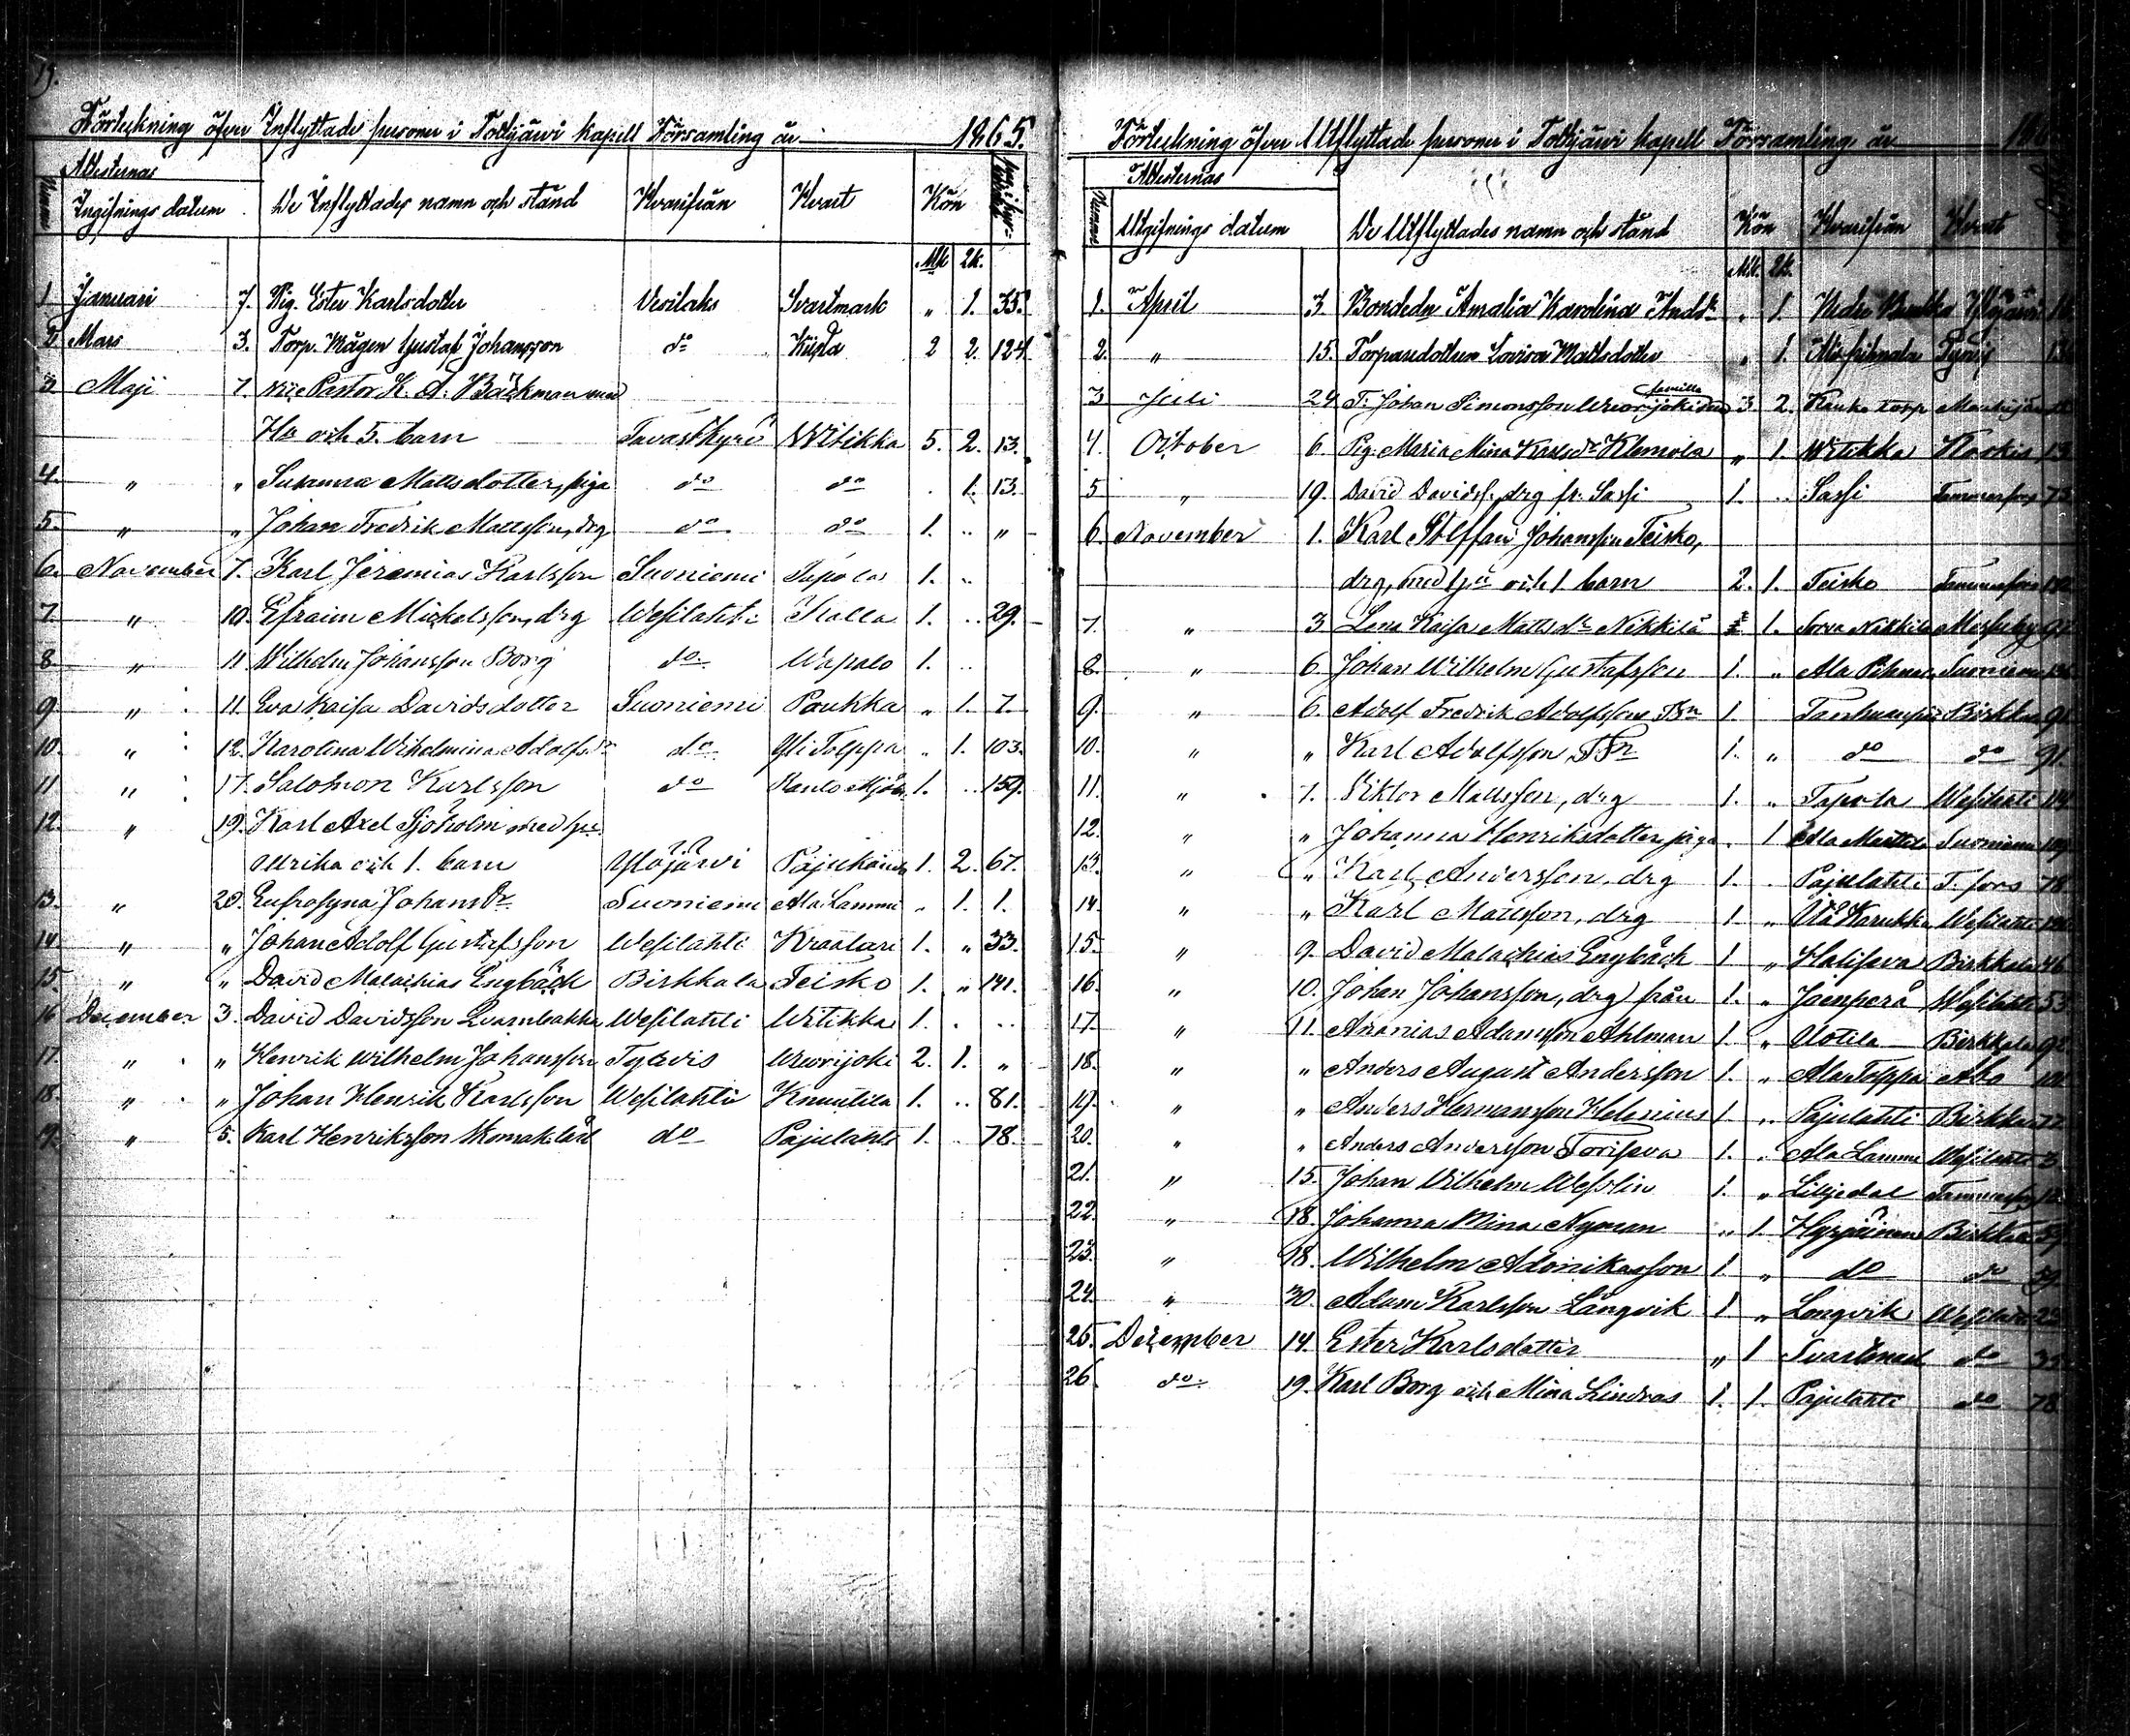 19.
Förteckning öfver Inflyttade personer i Tottijärvi kapell Församling år 1865.
Attesternas
Numro Ingifnings datum De Inflyttades namn och stånd Hvarifrån Hvart Kön
Mk. Qk.
1 Januari 7. Pig. Ester Karlsdotter Vesilaks Svartmark " 1. 35.
2 Mars 3. Torp. Mågen Gustaf Johansson do Kiista 2 2. 124
3 Maji 7. vice Pastor K. A. Bäckman med
Hu och 5. barn Tavastkyrö Witikka 5. 2. 13.
4. " " Susanna Mattsdotter, piga do do . 1. 13.
5. " " Johan Fredrik Mattsson, drg do do 1. .. "
6. November 7. Karl Jeremias Karlsson Suoniemi Tapola 1. ..
7. " 10. Efraim Mickelsson, drg Wesilahti Stalla 1. .. 29.
8. " 11 Wilhelm Johansson Borg do Wapalo 1. ..
9. " 11. Eva Kaisa Davidsdotter Suoniemi Paukka " 1. 7.
10. " 12. Karolina Wilhelmina Adolfsdr do Yli Tolppa " 1. 103.
11 " 17. Salomon Karlsson do 1. .. 159.
12. " 19. Karl Axel Sjöholm med hu
Ulrika och 1. barn Ylöjärvi 1. 2. 67.
13. " 20. Eufrosyna Johansdr Suoniemi Ala Lammi " 1. 1.
14. " " Johan Adolf Gustafsson Wesilahti Kraatari 1. " 33.
15. " " David Malachias Engbäck Birkkala Teisko 1. " 141.
16 December 3. David Davidsson Wesilahti Witikka 1. . ..
17. " " Henrik Wilhelm Johansson Wuorijoki 2. 1. "
18. " " Johan Henrik Karlsson Wesilahti Knuutila 1. .. 81.
19. " 5. Karl Henriksson do Pajulahti 1. .. 78.
Förteckning öfver Utflyttade personer i Tottijärvi kapell Församling år
Attesternas
Numro Utgifnings datum De Utflyttades namn och stånd Kön Hvarifrån Hvart
Mk. Qk.
1. April 3 Bondedr Amalia Karolina Andr " 1.
2. " 15. Torparedottern Lovisa Mattsdotter " 1.
familla
3 Juli 24 T. Johan Simonsson Wuorijoki med 3. 2. Kauko torp
4. October 6. Pig. Maria Mina Karlsdr Klemola " 1. Witikka
5 " 19. David Davidss. drg fr. Sassi 1. .. Sassi Tammerfors 73
6. November 1. Karl Steffan Johansson Teisko,
drg, med hu och 1 barn 2. 1. Teisko Tammerfors
7. " 3 Lena Kaisa Mattsdr Nikkilä 1. Sorva Nikkilä
8. " 6. Johan Wilhelm Gustafsson 1. " Suoniemi
9. " 6. Adolf Fredrik Adolfsson 1. Birkkala 91.
10. " " Karl Adolfsson 1. " do do 91.
11. " 7. Viktor Mattsson, drg 1. " Tapola Wesilahti
12. " " Johanna Henriksdotter, piga . 1 Ala Marttila Suoniemi
13. " " Karl Andersson, drg 1. . Pajulahti T. fors 78
14. " " Karl Mattsson, drg 1. " Wesilahti
15. " 9. David Malachias Engbäck 1 " Haliseva Birkkala 46
16. " 10. Johan Johansson, drg från 1. " Jaenperä Wesilahti 53
17. " 11. Ananias Adamsson Ahlman 1. " Uotila Birkkala 92
18. " " Anders August Andersson 1. " Ala Tolppa Åbo
19. " " Anders Hermansson Helenius 1 " Pajulahti Birkkala 77
20. " " Anders Andersson Toriseva 1. " Ala Lammi Wesilahti 3
21. " 15. Johan Wilhelm Wesslin 1. " Liljedal Tammerfors
22. " 18. Johanna Mina Nyman " 1. Hyrväinen Birkkala 59
23. " 18. Wilhelm Adonikasson 1. " do do 59
24. " 30. Adam Karlsson Långvik 1 " Longvik Wesilahti 23
25. December 14. Ester Karlsdotter " 1 do 35
26. do 19. Karl Borg och Mina Lindroos 1. 1. Pajulahti do 78